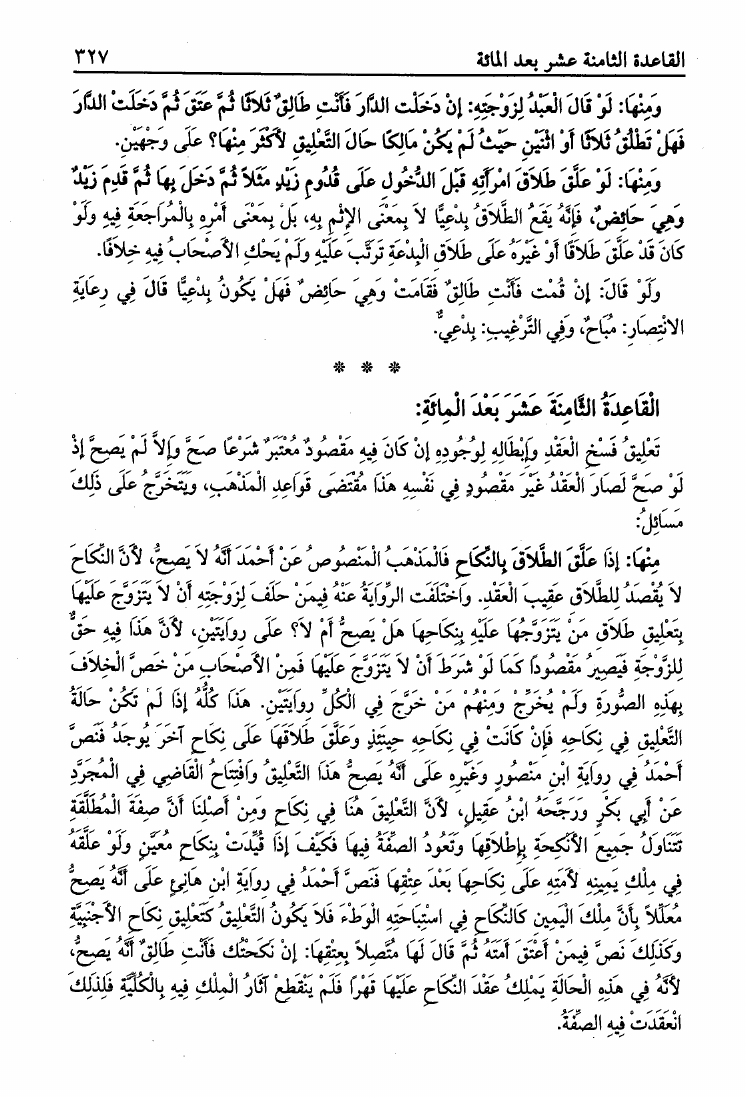 القاعدة الثامنة عشر بعد المائة ٣٢٧
وَمِنْهَا: لَوْ قَالَ الْعَبْدُ لِزَوْجَتِهِ: إِنْ دَخَلْت الدَّارَ فَأَنْتِ طَالِقٌ ثَلَاثًا ثُمَّ عَتَقَ ثُمَّ دَخَلَتْ الدَّارَ
فَهَلْ تَطْلُقُ ثَلَاثًا أَوْ اثْنَيْنِ حَيْثُ لَمْ يَكُنْ مَالِكًا حَالَ التَّعْلِيقِ لأَكْثَرَ مِنْهَا؟ عَلَى وَجْهَيْنِ.
وَمِنْهَا: لَوْ عَلَّقَ طَلَاقَ امْرَأَتِهِ قَبْلَ الدُّخُولِ عَلَى قُدُومِ زَيْدٍ مَثَلاً ثُمَّ دَخَلَ بِهَا ثُمَّ قَدِمَ زَيْدٌ
وَهِيَ حَائِضٌ، فَإِنَّهُ يَقَعُ الطَّلَاقُ بِدْعِيًّا لَا بِمَعْنَى الإِثْمِ بِهِ، بَلْ بِمَعْنَى أَمْرِهِ بِالْمُرَاجَعَةِ فِيهِ وَلَوْ
كَانَ قَدْ عَلَّقَ طَلَاقًا أَوْ غَيْرَهُ عَلَى طَلَاقِ الْبِدْعَةِ تَرَتَّبَ عَلَيْهِ وَلَمْ يَحْكِ الأَصْحَابُ فِيهِ خِلَافًا.
وَلَوْ قَالَ: إِنْ قُمْت فَأَنْتِ طَالِقٌ فَقَامَتْ وَهِيَ حَائِضٌ فَهَلْ يَكُونُ بِدْعِيًّا قَالَ فِي رِعَايَةِ
الانْتِصَارِ: مُبَاحٌ، وَفِي التَّرْغِيبِ: بِدْعِيٌّ.
* * *
الْقَاعِدَةُ الثَّامِنَةَ عَشَرَ بَعْدَ الْمِائَةِ:
تَعْلِيقُ فَسْخِ الْعَقْدِ وَإِبْطَالِهِ لِوُجُودِهِ إِنْ كَانَ فِيهِ مَقْصُودٌ مُعْتَبَرٌ شَرْعًا صَحَّ وَإِلَّا لَمْ يَصِحَّ إِذْ
لَوْ صَحَّ لَصَارَ الْعَقْدُ غَيْرَ مَقْصُودٍ فِي نَفْسِهِ هَذَا مُقْتَضَى قَوَاعِدِ الْمَذْهَبِ، وَيَتَخَرَّجُ عَلَى ذَلِكَ
مَسَائِلُ:
مِنْهَا: إِذَا عَلَّقَ الطَّلَاقَ بِالنِّكَاحِ فَالْمَذْهَبُ الْمَنْصُوصُ عَنْ أَحْمَدَ أَنَّهُ لَا يَصِحُّ، لأَنَّ النِّكَاحَ
لَا يُقْصَدُ لِلطَّلَاقِ عَقِيبَ الْعَقْدِ. وَاخْتَلَفَت الرِّوَايَةُ عَنْهُ فِيمَنْ حَلَفَ لِزَوْجَتِهِ أَنْ لَا يَتَزَوَّجَ عَلَيْهَا
بِتَعْلِيقِ طَلَاقِ مَنْ يَتَزَوَّجُهَا عَلَيْهِ بِنِكَاحِهَا هَلْ يَصِحُّ أَمْ لَا؟ عَلَى رِوَايَتَيْنِ، لأَنَّ هَذَا فِيهِ حَقٌّ
لِلزَّوْجَةِ فَيَصِيرُ مَقْصُودًا كَمَا لَوْ شَرَطَ أَنْ لَا يَتَزَوَّجَ عَلَيْهَا فَمِنْ الأَصْحَابِ مَنْ خَصَّ الْخِلَافَ
بِهَذِهِ الصُّورَةِ وَلَمْ يُخَرِّجْ وَمِنْهُمْ مَنْ خَرَّجَ فِي الْكُلِّ رِوَايَتَيْنِ. هَذَا كُلُّهُ إِذَا لَمْ تَكُنْ حَالَةُ
التَّعْلِيقِ فِي نِكَاحِهِ فَإِنْ كَانَتْ فِي نِكَاحِهِ حِينَئِذٍ وَعَلَّقَ طَلَاقَهَا عَلَى نِكَاحٍ آخَرَ يُوجَدُ فَنَصَّ
أَحْمَدُ فِي رِوَايَةِ ابْنِ مَنْصُورٍ وَغَيْرِهِ عَلَى أَنَّهُ يَصِحُّ هَذَا التَّعْلِيقُ وَافْتِتَاحُ الْقَاضِي فِي الْمُجَرَّدِ
عَنْ أَبِي بَكْرٍ وَرَجَّحَهُ ابْنُ عَقِيلٍ، لأَنَّ التَّعْلِيقَ هُنَا فِي نِكَاحٍ وَمِنْ أَصْلِنَا أَنَّ صِفَةَ الْمُطَلَّقَةِ
تَتَنَاوَلُ جَمِيعَ الأَنْكِحَةِ بِإِطْلَاقِهَا وَتَعُودُ الصِّفَةُ فِيهَا فَكَيْفَ إِذَا قُيِّدَتْ بِنِكَاحٍ مُعَيَّنٍ وَلَوْ عَلَّقَهُ
فِي مِلْكِ يَمِينِهِ لأَمَتِهِ عَلَى نِكَاحِهَا بَعْدَ عِتْقِهَا فَنَصَّ أَحْمَدُ فِي رِوَايَةِ ابْنِ هَانِئٍ عَلَى أَنَّهُ يَصِحُّ
مُعَلِّلاً بِأَنَّ مِلْكَ الْيَمِينِ كَالنِّكَاحِ فِي اسْتِبَاحَتِهِ الْوَطْءَ فَلَا يَكُونُ التَّعْلِيقُ كَتَعْلِيقِ نِكَاحِ الأَجْنَبِيَّةِ
وَكَذَلِكَ نَصَّ فِيمَنْ أَعْتَقَ أَمَتَهُ ثُمَّ قَالَ لَهَا مُتَّصِلاً بِعِتْقِهَا: إِنْ نَكَحْتُك فَأَنْتِ طَالِقٌ أَنَّهُ يَصِحُّ،
لأَنَّهُ فِي هَذِهِ الْحَالَةِ يَمْلِكُ عَقْدَ النِّكَاحِ عَلَيْهَا قَهْرًا فَلَمْ يَنْقَطِعْ آثَارُ الْمِلْكِ فِيهِ بِالْكُلِّيَّةِ فَلِذَلِكَ
انْعَقَدَتْ فِيهِ الصِّفَةُ.